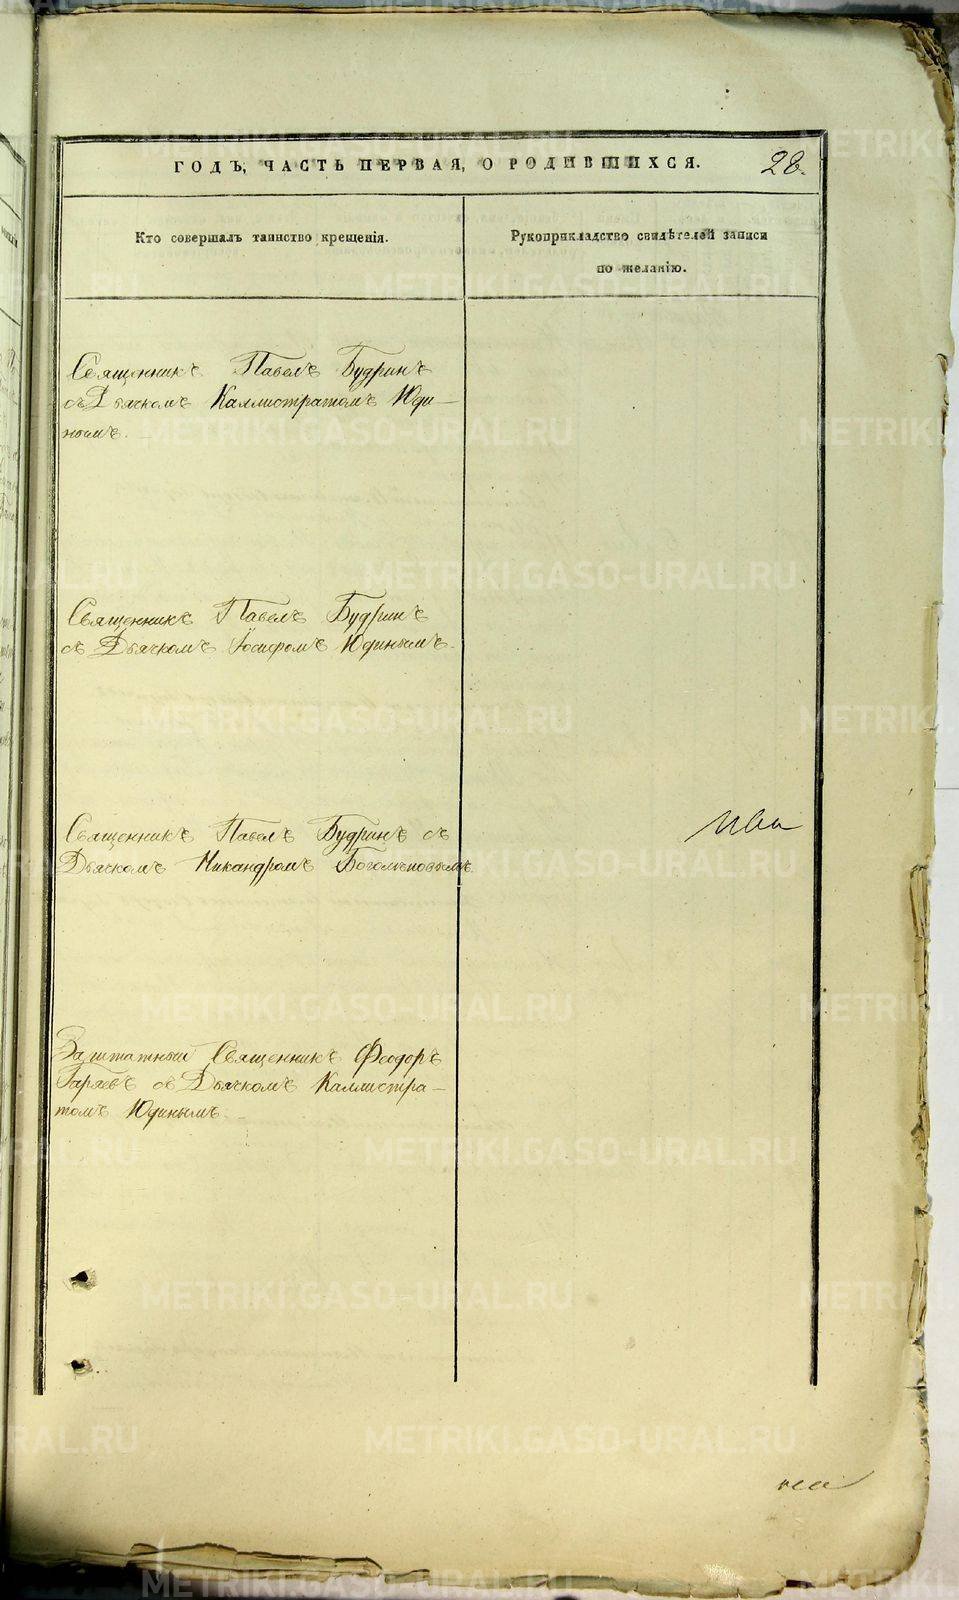 ГОДЪ, ЧАСТЬ ПЕРВАЯ, О РОДИВШИХСЯ.
28.
Кто совершалъ таинство крещенія.
Рукоприкладство свидѣтелей записи
по желанію.
Священникъ Павелъ Будринъ
съ Дьячкомъ Каллистратомъ Юди—
нымъ.
Священникъ Павелъ Будринъ
съ Дьячкомъ Іосифомъ Юдинымъ.
Священникъ Павелъ Будринъ съ
Дьячкомъ Никандромъ Боголѣповымъ
Заштатный Священникъ Феодоръ
Гаряевъ съ Дьячкомъ Каллистра—
томъ Юдинымъ.
METRIKI.GASO-URAL.RU